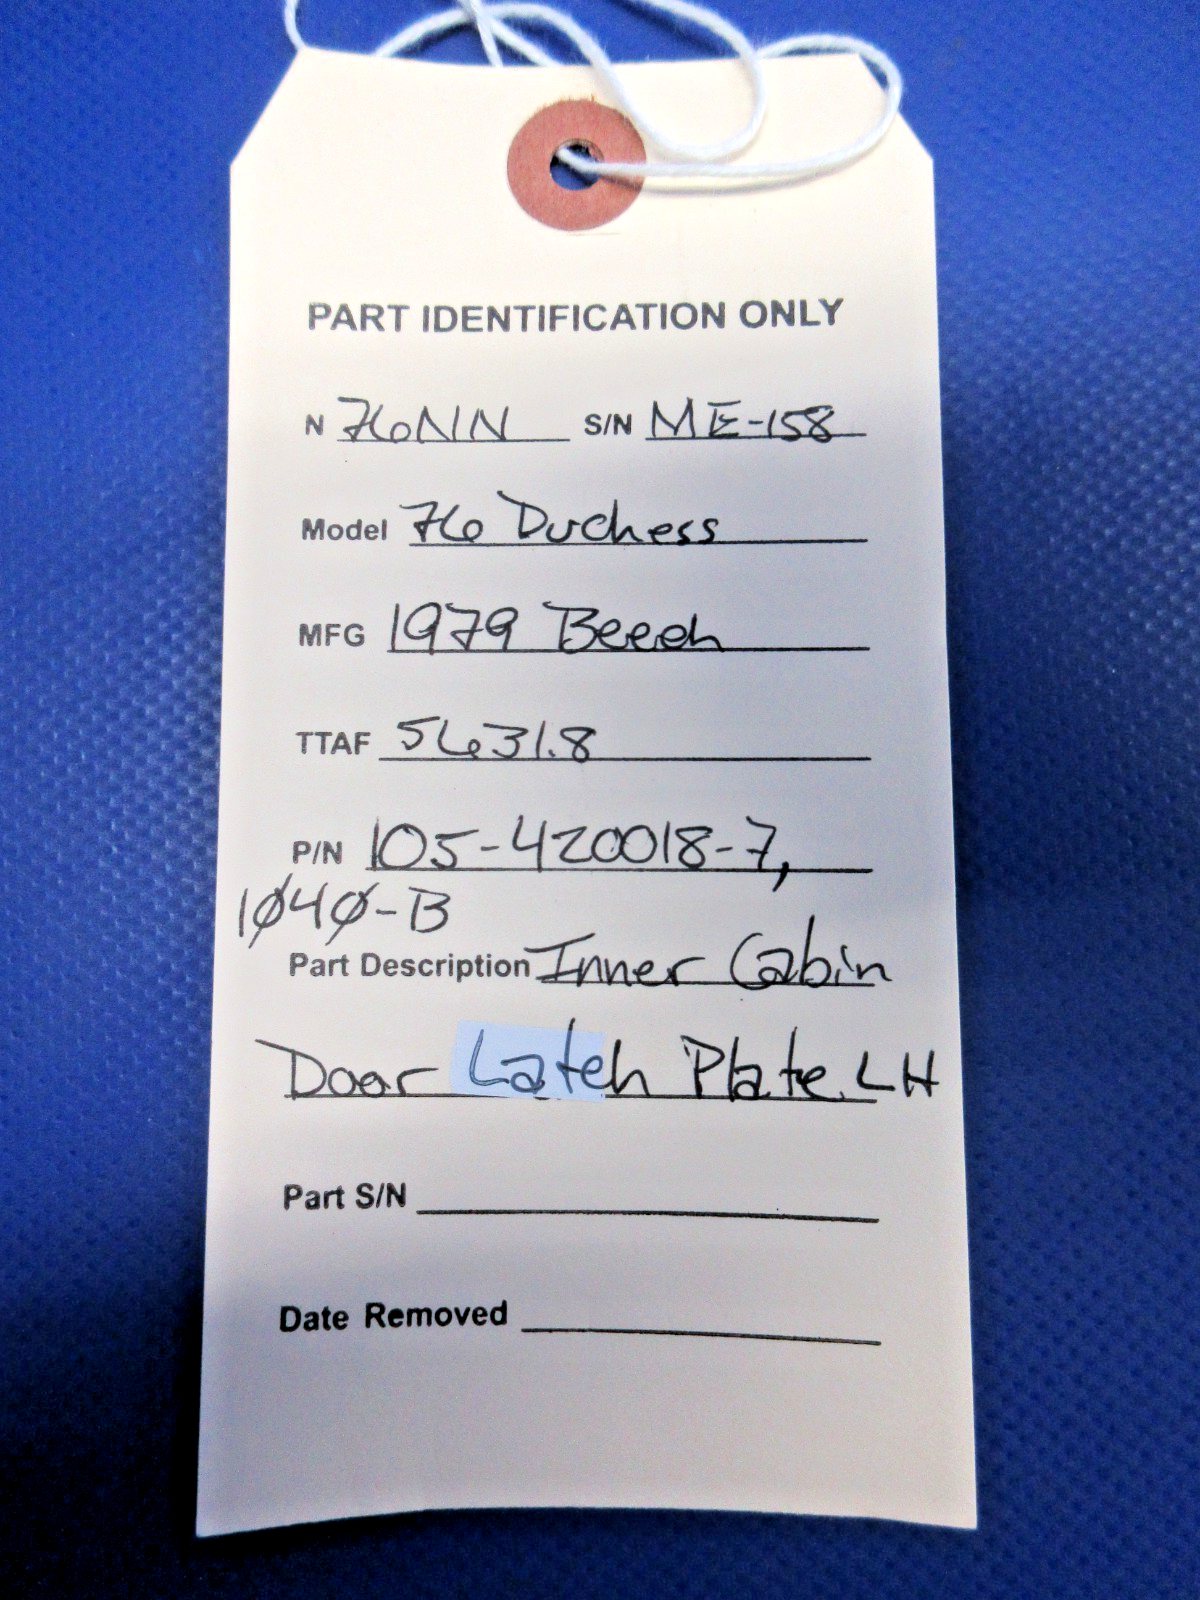 PART IDENTIFICATION ONLY
N 76NN S/N ME-158
Model 76 Duchess
MFG 1979 Beech
TTAF 5631.8
P/N 105-420018-7,
1040-B
Part Description Inner Cabin
Door Latch Plate LH
Part S/N
Date Removed